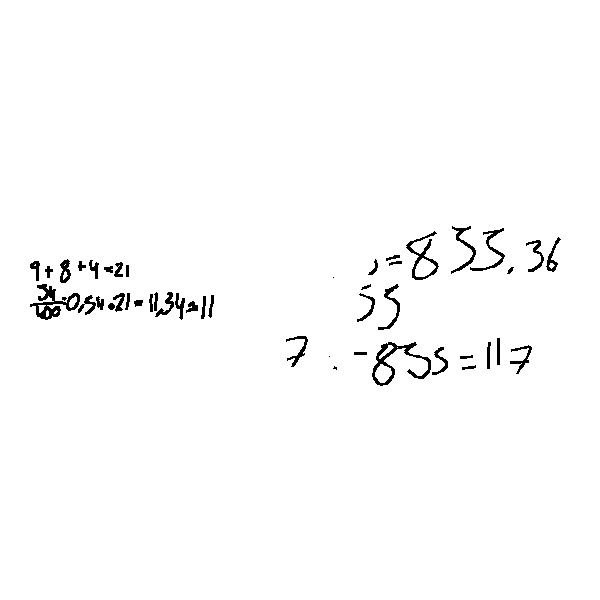 9+8+4=21
54/100=0,54·21=11,34≈11
,=855,36
55
7 . -855=117